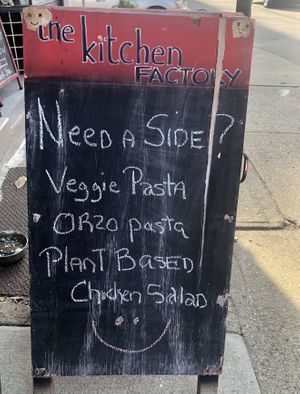 the kitchen
FACTORY
NEED A SIDE?
Veggie Pasta
ORZO pasta
PLANT BASED
Chicken Salad